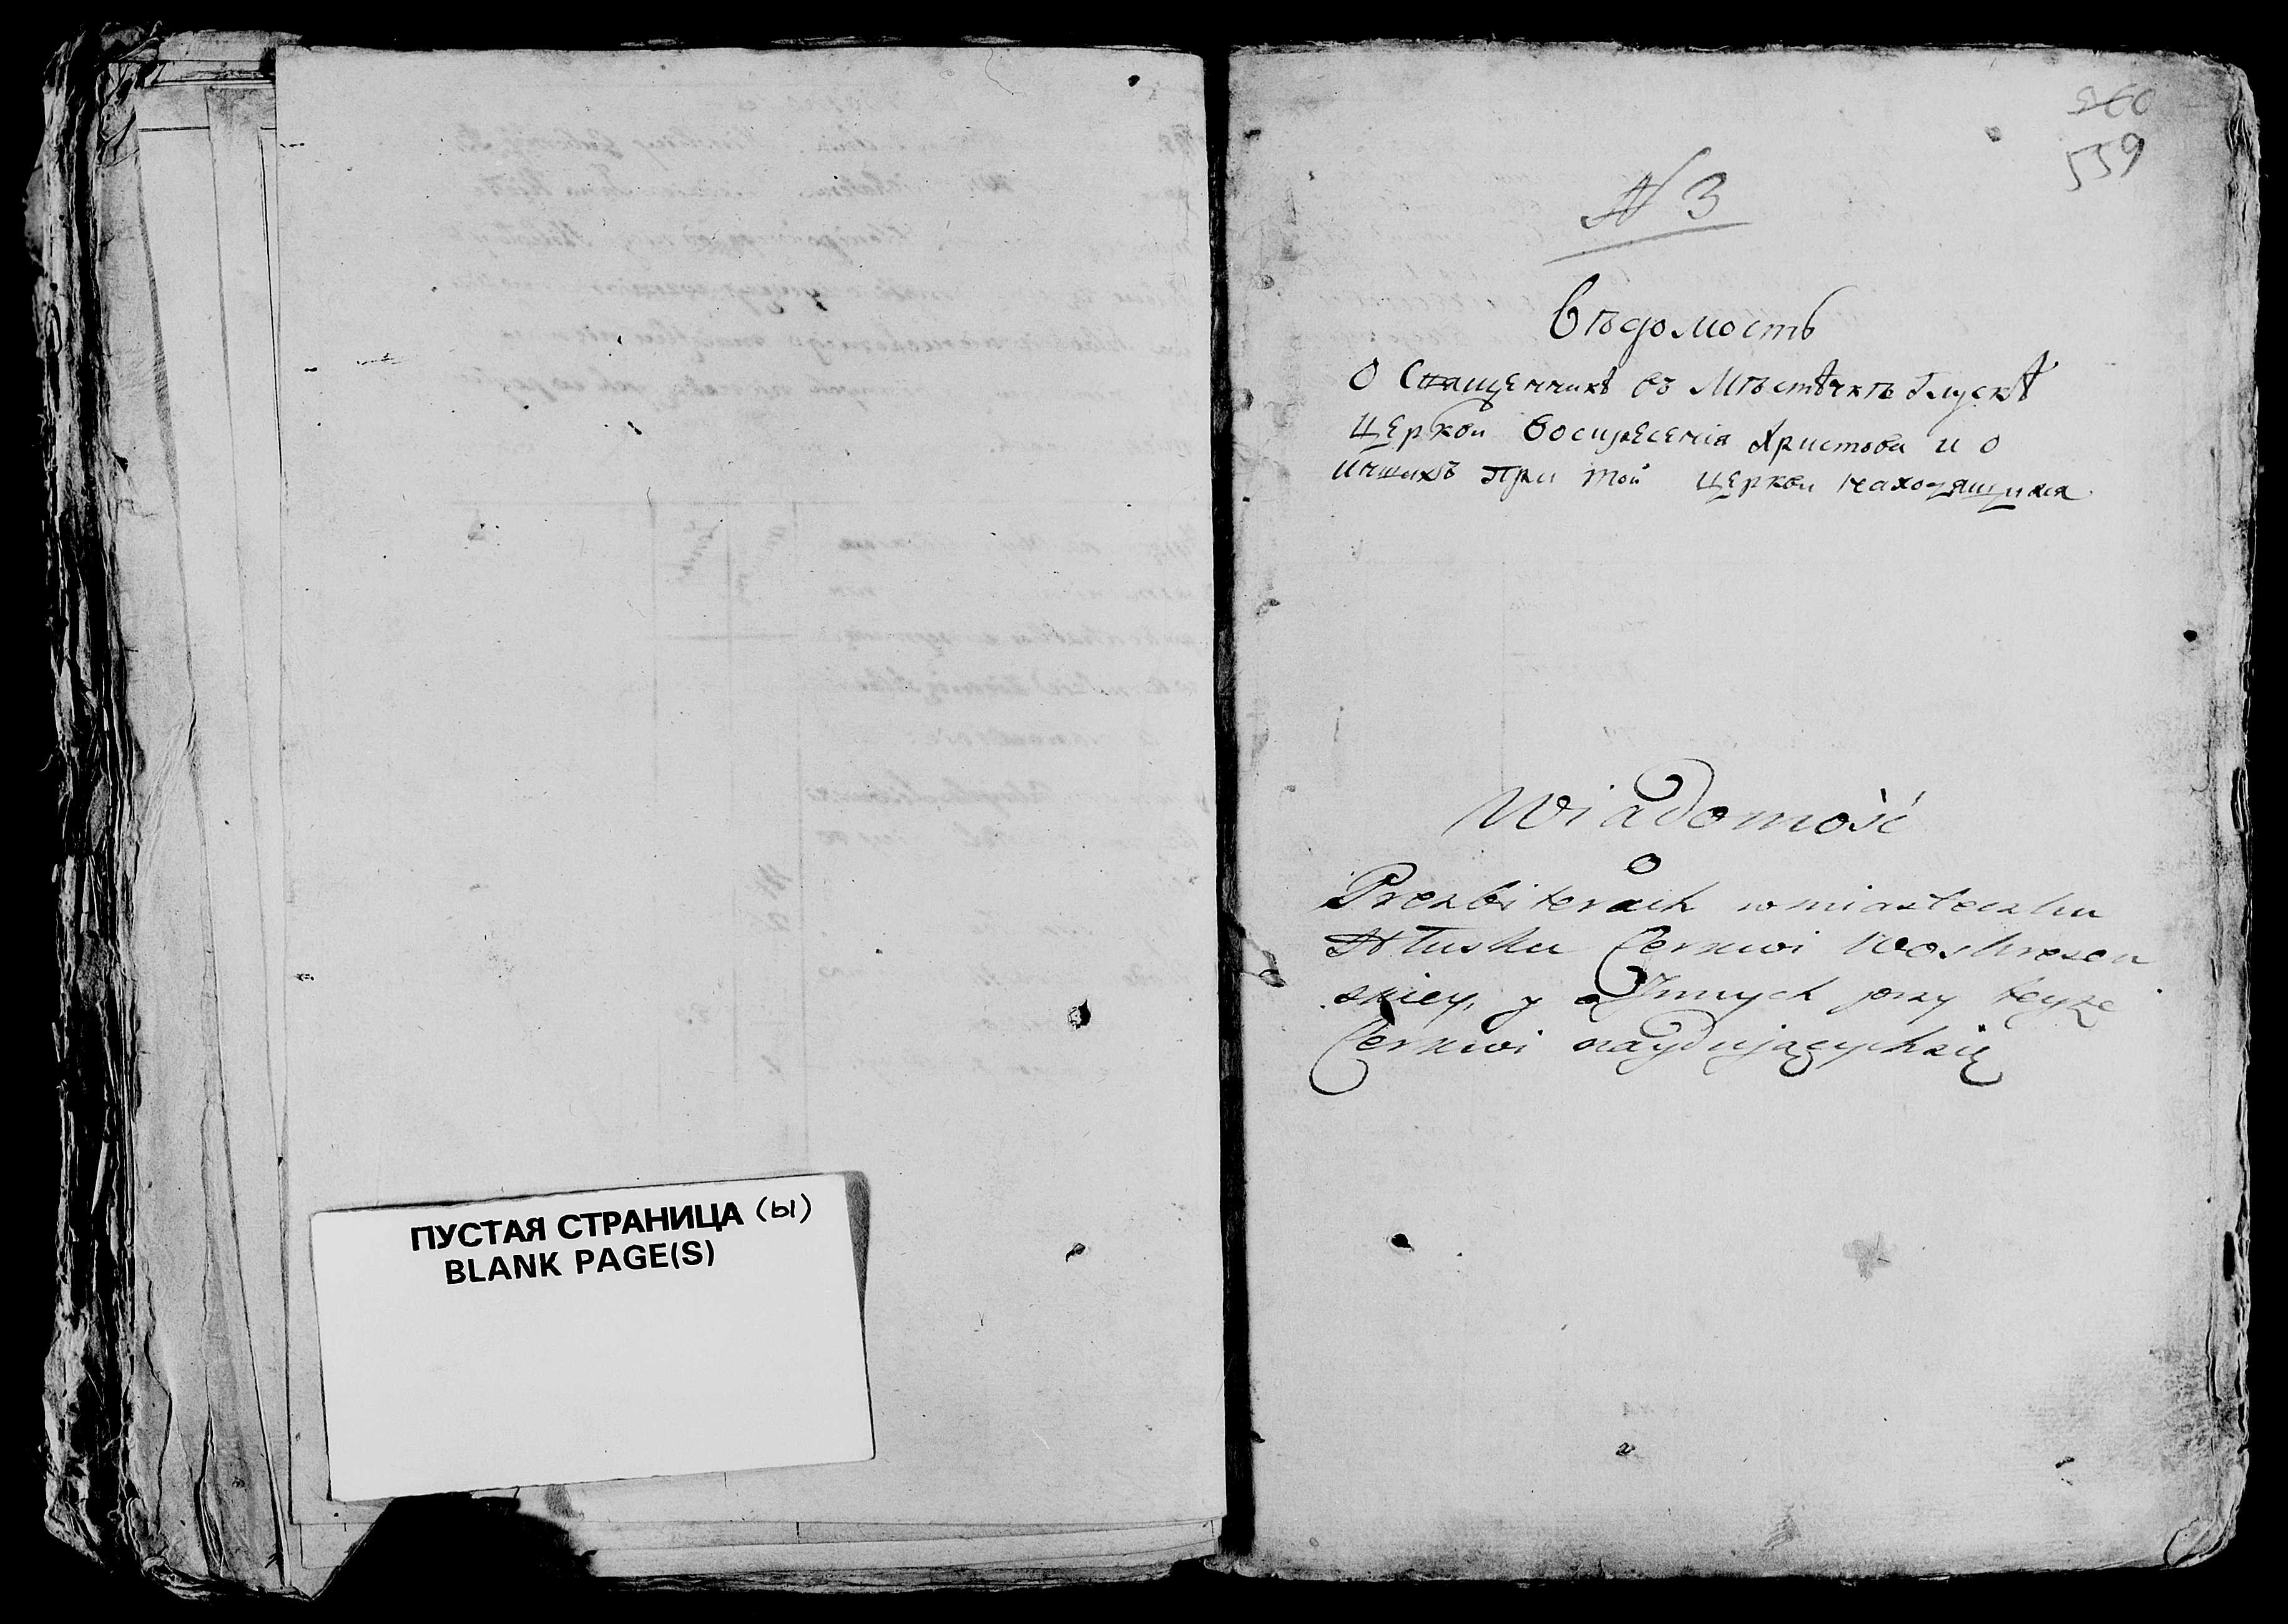 ПУСТАЯ СТРАНИЦА (Ы)
BLANK PAGE(S)
560
559
N 3
Вѣдомость
О Священникѣ въ Мѣстѣчкѣ Глускѣ
Церкви Воскресенія Христова и о
иншихъ При той Церкви находящихся
Wiadomość
o
Prezbiterach w miasteczku
Hłusku Cerkwi Woskresen
skiey, y o Innych przy teyże
Cerkwi nayduiących się